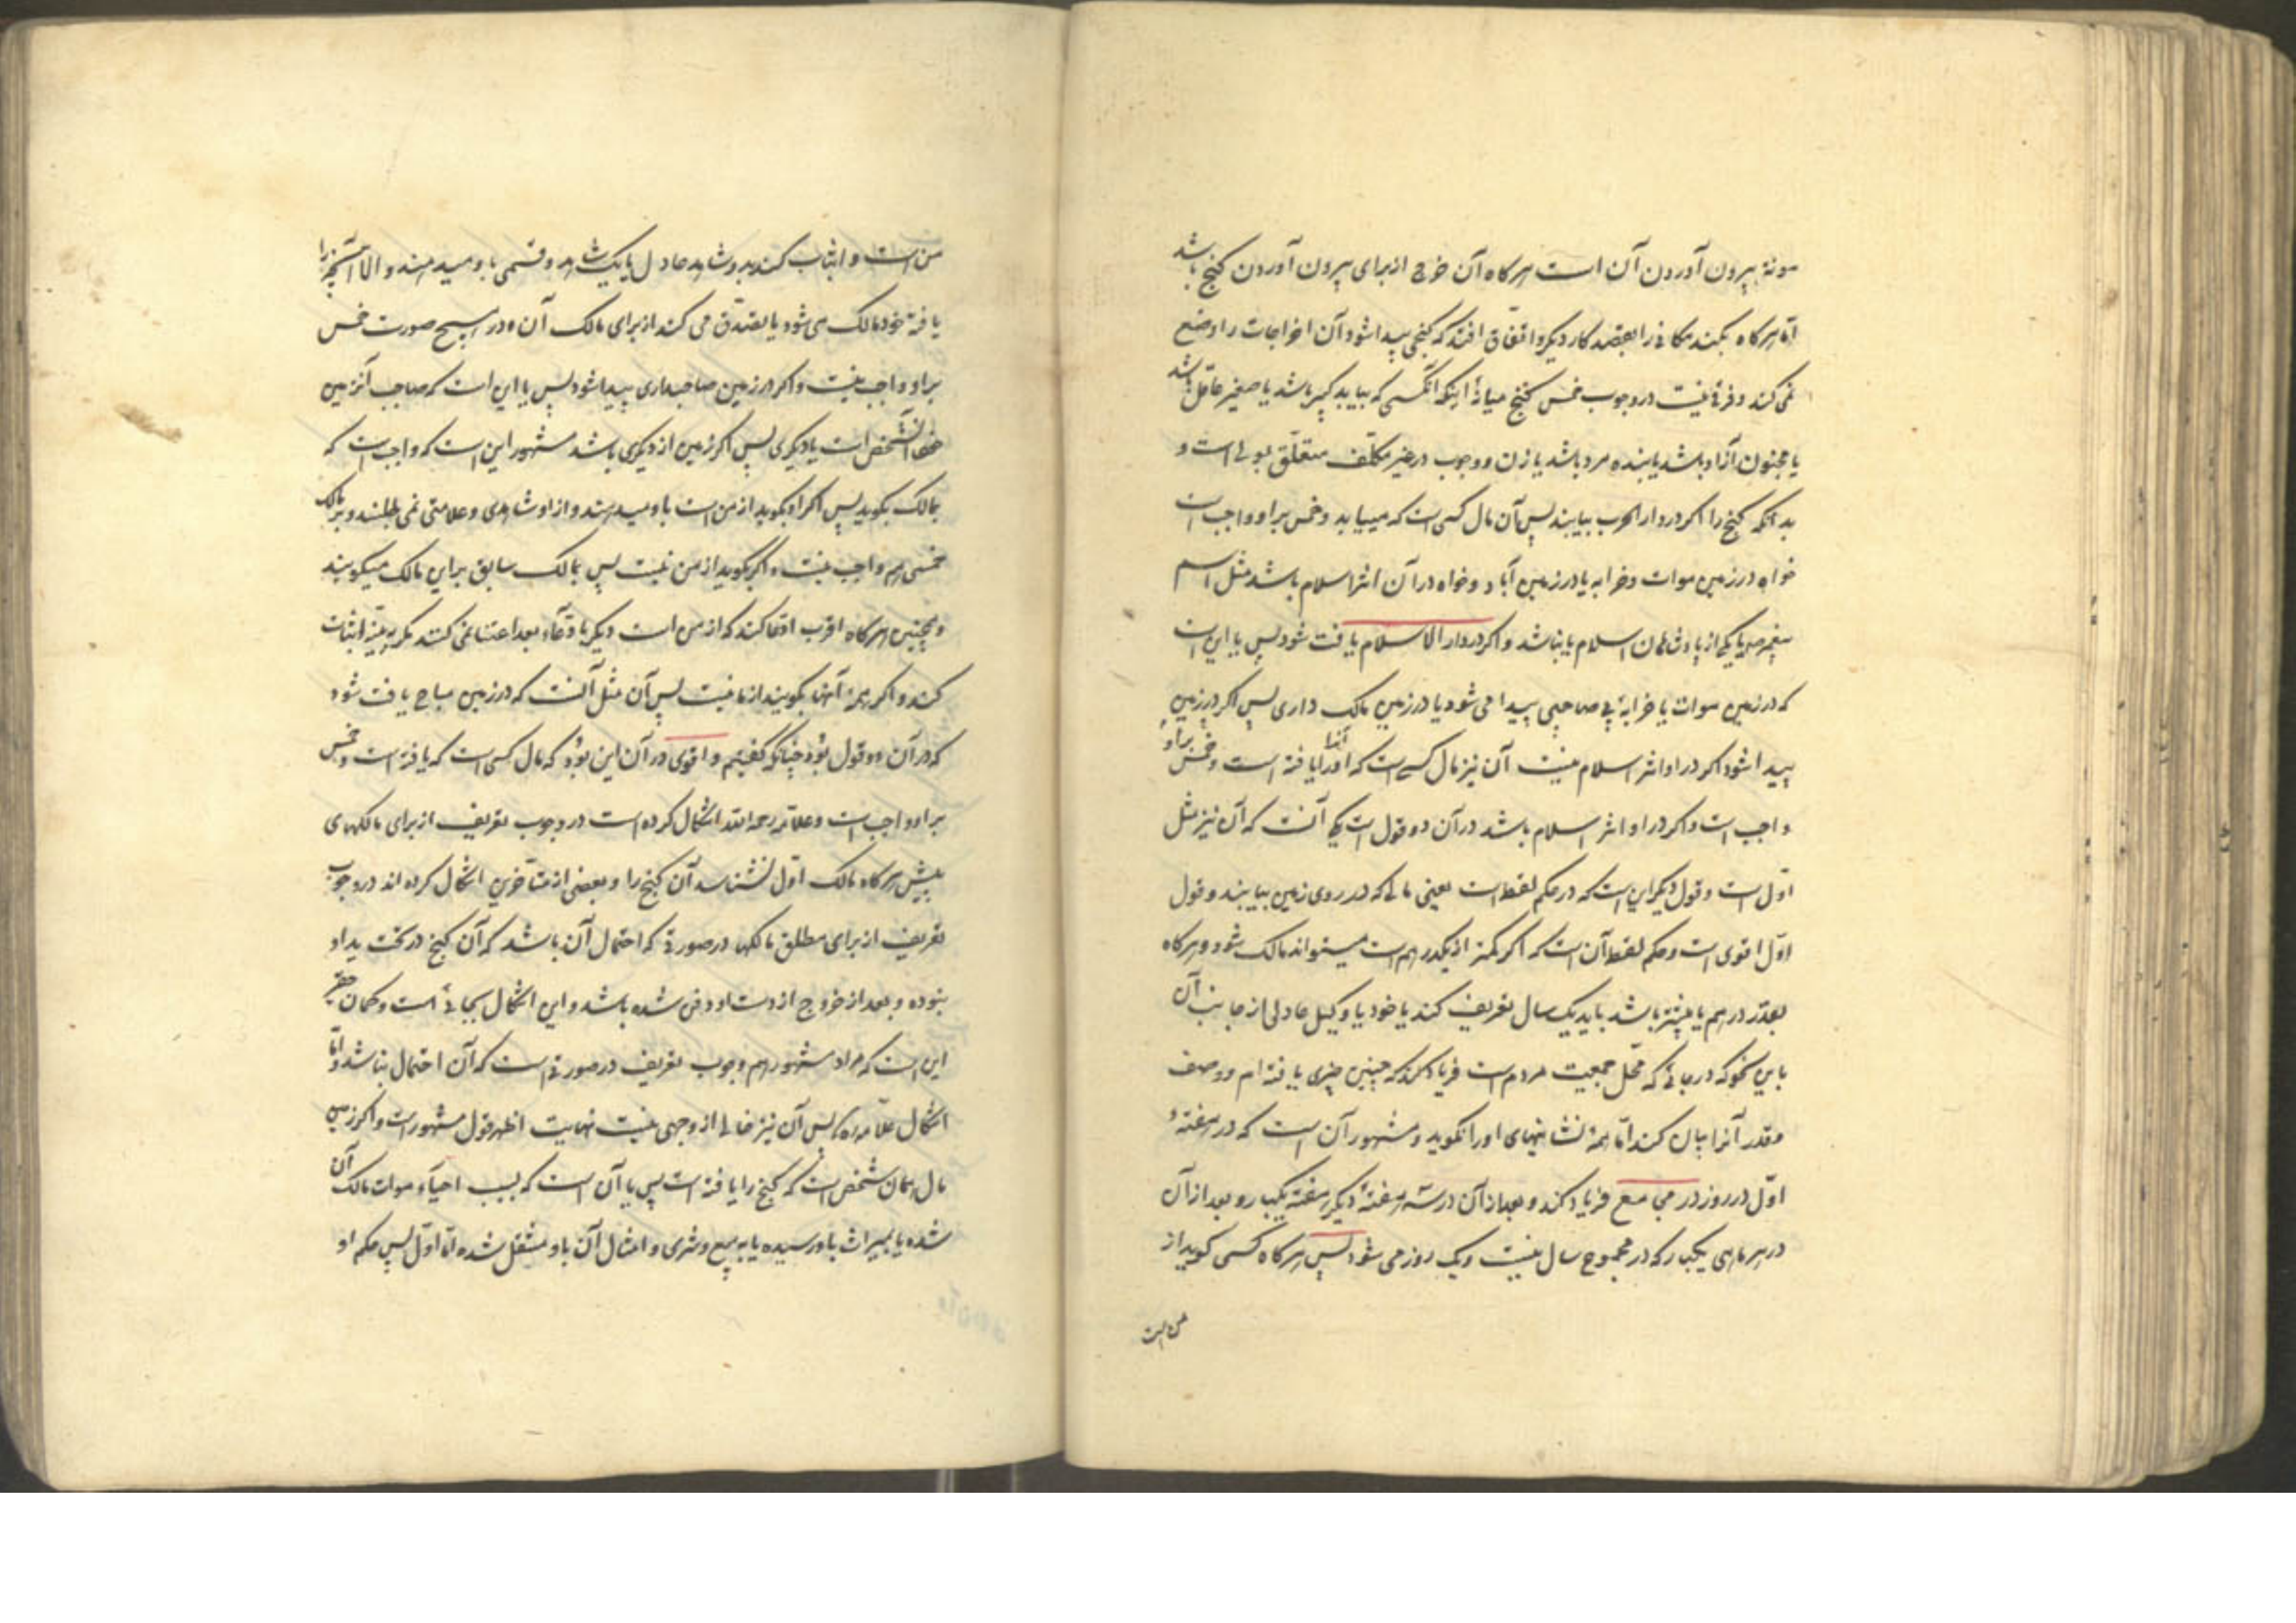 مونهٔ بیرون آوردن آن است هرکاه آن خرج از برای بیرون آوردن کنج باشد
اما هرکاه بکند مکانی را بقصد کار دیگر و اتفاق افتد که کنجی پیدا شود آن اخراجات را وضع
نمی کند و فرقی نیست در وجوب خمس کنج میانهٔ اینکه آنکسی که بیابد کبیر باشد یا صغیر عاقل باشد
یا مجنون آزاد باشد یا بنده مرد باشد یا زن و وجوب در غیر مکلف متعلق بولی است و
بدانکه کنج را اکر در دار الحرب بیابند پس آن مال کسی است که مییابد و خمس بر او واجب است
خواه در زمین موات و خرابه یا در زمین آباد و خواه در آن اثر اسلام باشد مثل اسم
پیغمبر ص یا یکی از پادشاهان اسلام یا نباشد و اکر در دار الاسلام یافت شود پس یا این است
که در زمین موات یا خرابهٔ بی صاحبی پیدا می شود یا در زمین مالک داری پس اکر در زمین
پیدا شود اکر در او اثر اسلام نیست آن نیز مال کسی است که او را یافته است و خمس بر او
واجب است و اکر در او اثر اسلام باشد در آن دو قول است یکی آنست که آن نیز مثل
اول است و قول دیکر این است که در حکم لقطه است یعنی مالی که در روی زمین بیابند و قول
اول اقوی است و حکم لقطه آن است که اکر کمتر از یکدرهم است میتواند مالک شود و هرکاه
بقدر درهم یا بیشتر باشد باید یک سال تعریف کند یا خود یا وکیل عادلی از جانب آن
باین نحو که در جائی که محل جمعیت مردم است فریاد کند که چنین چیزی یافته ام و وصف
و قدر آنرا بیان کند اما همهٔ نشانیهای او را نکوید و مشهور آن است که در هفتهٔ
اول در روز در مجامع فریاد کند و بعد از آن در سه هفتهٔ دیکر هفتهٔ یکبار و بعد از آن
در هر ماهی یکبار که در مجموع سال بیست و یک روز می شود پس هرکاه کسی کوید از
من است
من است و اثبات کند بدو شاهد عادل یا یک شاهد و قسمی باو میدهند و الا آنچه را
یافته خود مالک می شود یا تصدق می کند از برای مالک آن و در هیچ صورت خمس
بر او واجب نیست و اکر در زمین صاحبداری پیدا شود پس یا این است که صاحب آنزمین
خود آنشخص است یا دیکری پس اکر زمین از دیکری باشد مشهور این است که واجب است که
بمالک بکوید پس اکر او بکوید از من است باو میدهند و از او شاهدی و علامتی نمی طلبند و بر مالک
خمسی هم واجب نیست و اکر بکوید از من نیست پس بمالک سابق بر این مالک میکویند
و همچنین هرکاه اقرب ادعا کند که از من است دیکر بادعاء بعد اعتنا نمی کنند مکر به بینه اثبات
کند و اکر همهٔ آنها بکویند از ما نیست پس آن مثل آنست که در زمین مباح یافت شود
که در آن دو قول بود چنانکه کفتیم و اقوی در آن این بود که مال کسی است که یافته است و خمس
بر او واجب است و علامه رحمه الله اشکال کرده است در وجوب تعریف از برای مالکهای
پیش هرکاه مالک اول نشناسد آن کنج را و بعضی از متاخرین اشکال کرده اند در وجوب
تعریف از برای مطلق مالکها در صورتی که احتمال آن باشد که آن کنج در تحت ید او
نبوده و بعد از خروج از دست او دفن شده باشد و این اشکال بجائی است و کمان حقیر
این است که مراد مشهور هم وجوب تعریف در صورتی است که آن احتمال نباشد و اما
اشکال علامه ره پس آن نیز خالی از وجهی نیست نهایت اظهر قول مشهور است و اکر زمین
مال همان شخص است که کنج را یافته است پس یا آن است که بسبب احیاء موات مالک آن
شده یا بمیراث باو رسیده یا به بیع و شری و امثال آن باو منتقل شده اما اول پس حکم او